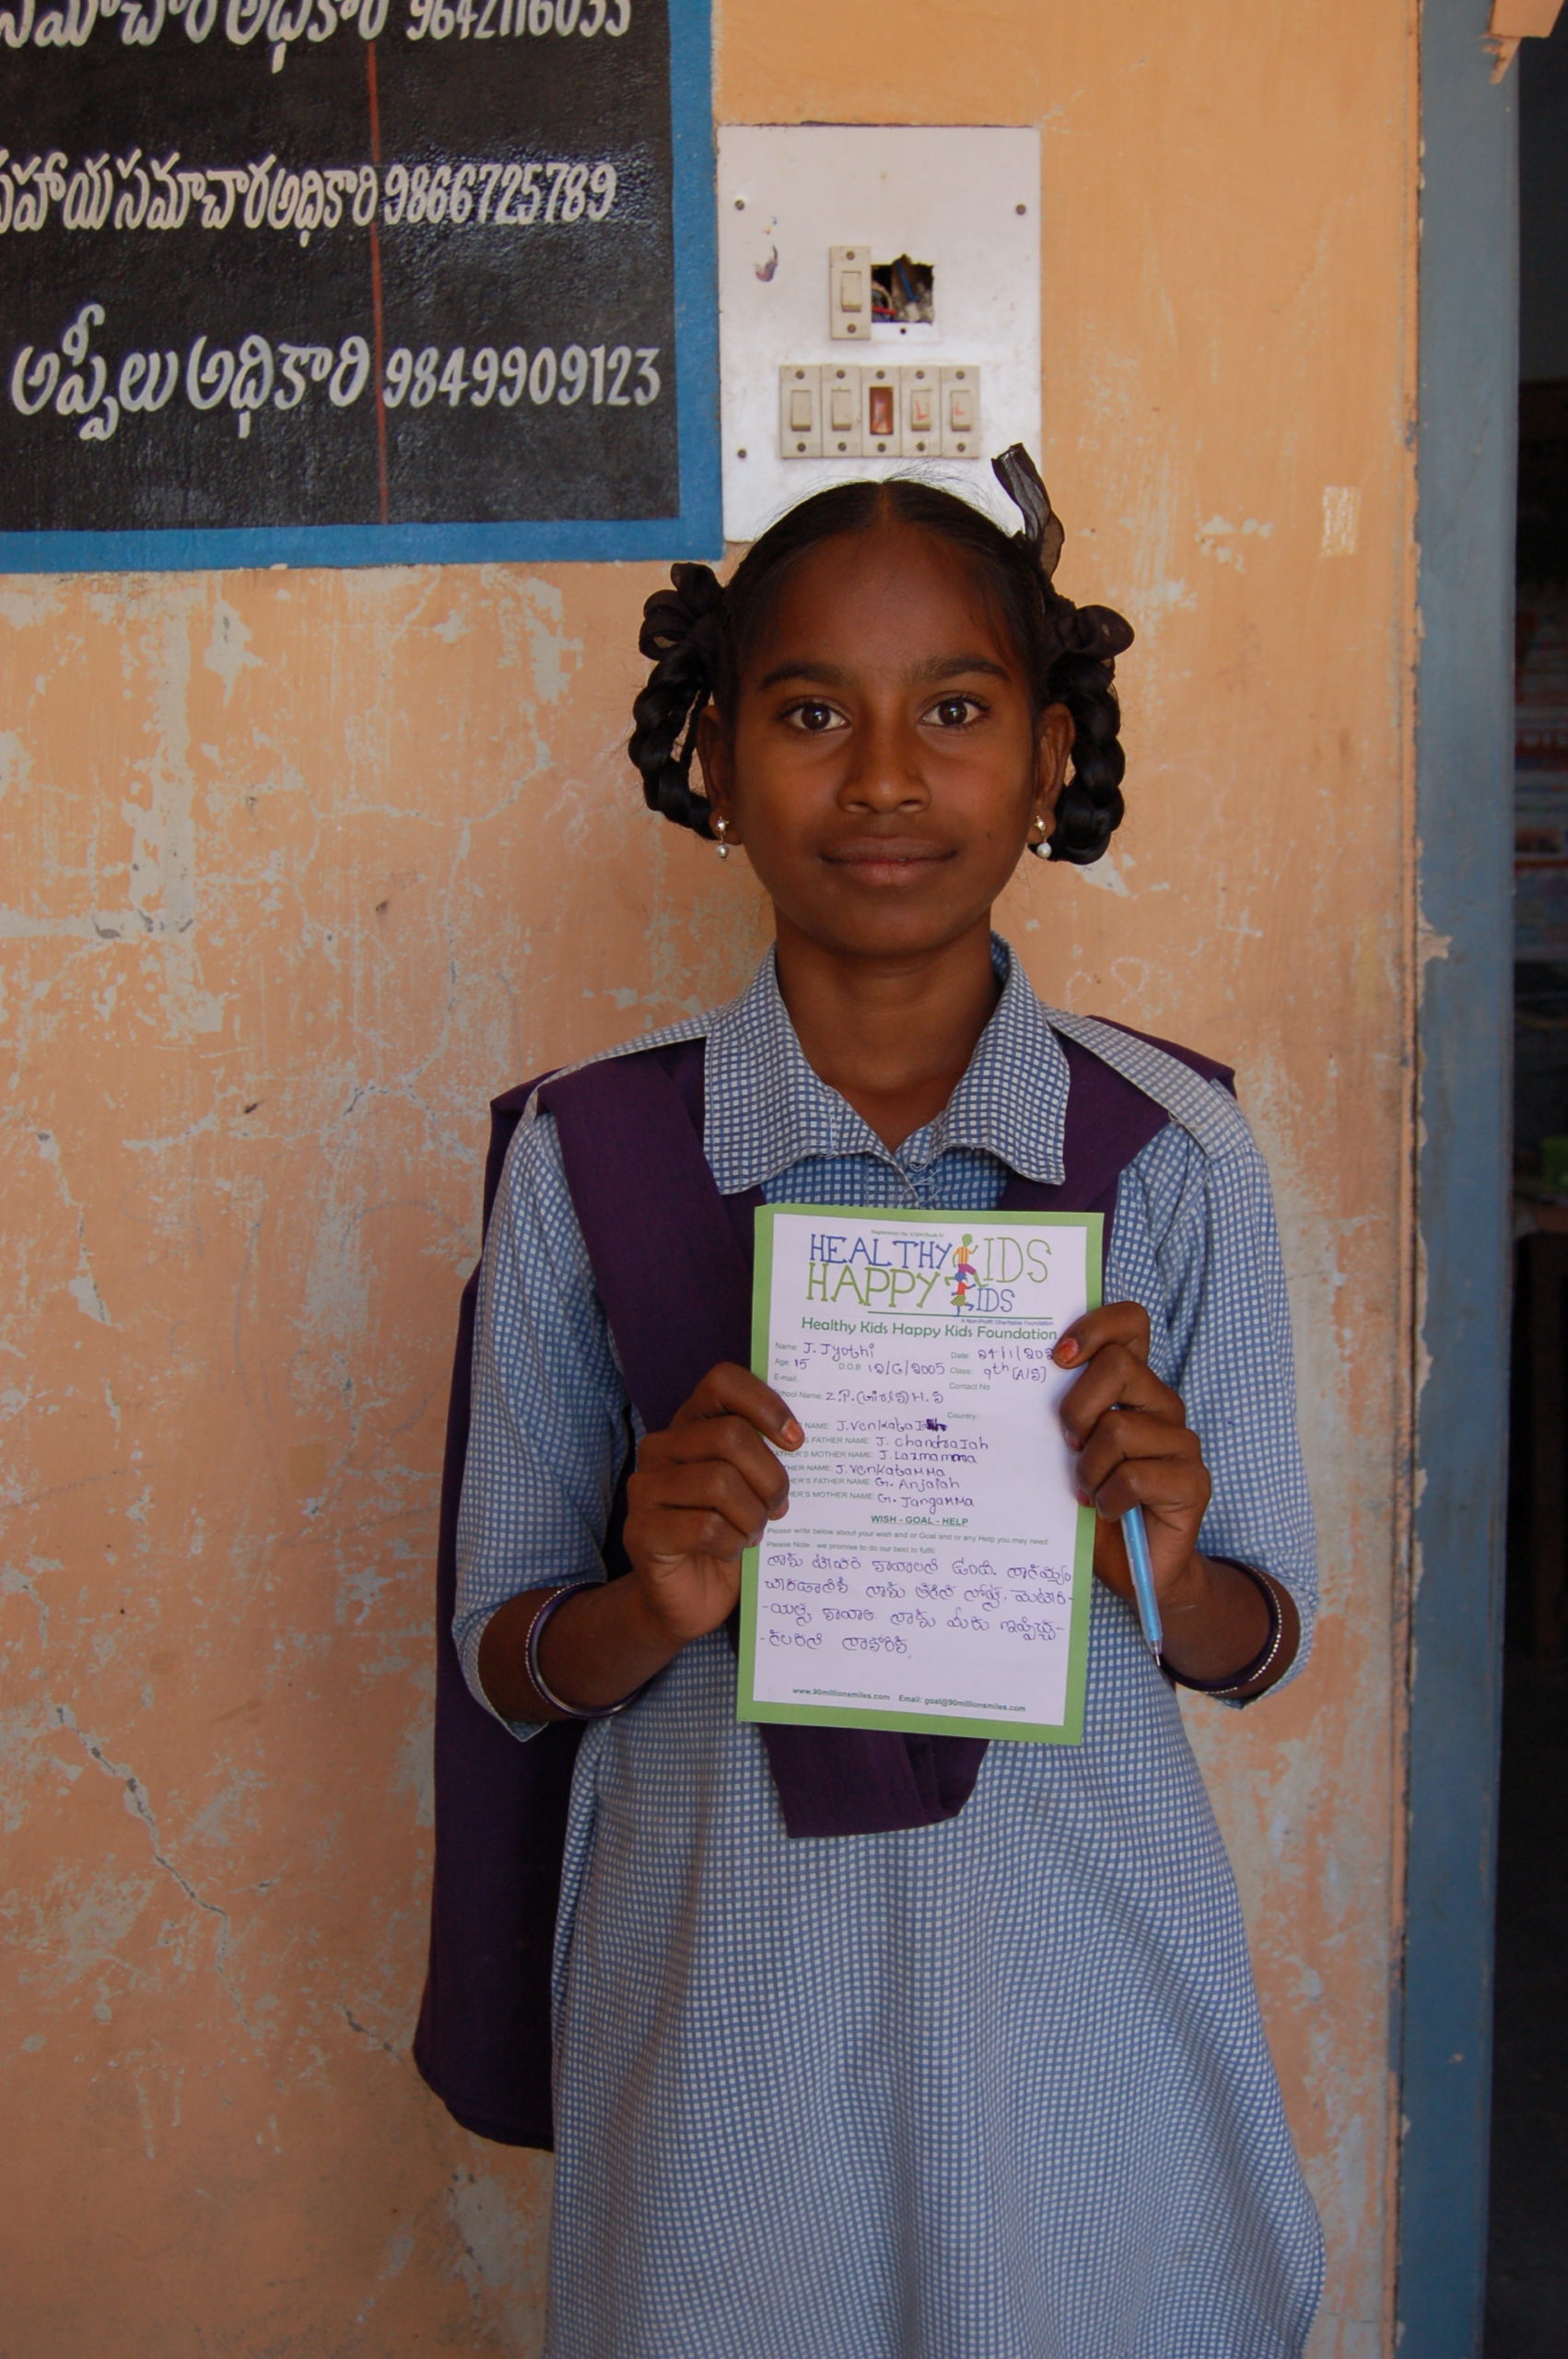 సమాచార అధికారి 9642116033
సహాయ సమాచార అధికారి 9866725789
అప్పీలు అధికారి 9849909123
HEALTHY KIDS
HAPPY KIDS
A Non-Profit Charitable Foundation
Healthy Kids Happy Kids Foundation
Name: J. Jyothi Date: 24/1/202
Age: 15 D.O.B 12/6/2005 Class: 9th (A/S)
E-mail: Contact No
School Name: Z.P. (Girls) H.S
Country:
NAME: J. Venkata Iah
'S FATHER NAME: J. Chandra Iah
FATHER'S MOTHER NAME: J. Lazmamma
THER NAME: J. VenkataMMa
HER'S FATHER NAME: G. Anjaiah
HER'S MOTHER NAME: G. JangaMMa
WISH - GOAL - HELP
Please write below about your wish and or Goal and or any Help you may need:
Please Note : we promise to do our best to fulfil:
నాకు టీచర్ కావాలని ఉంది. నా లక్ష్యం
నాకు
కావాలి నాకు మీరు
నా కోరిక.
www.90millionsmiles.com Email: goal@90millionsmiles.com